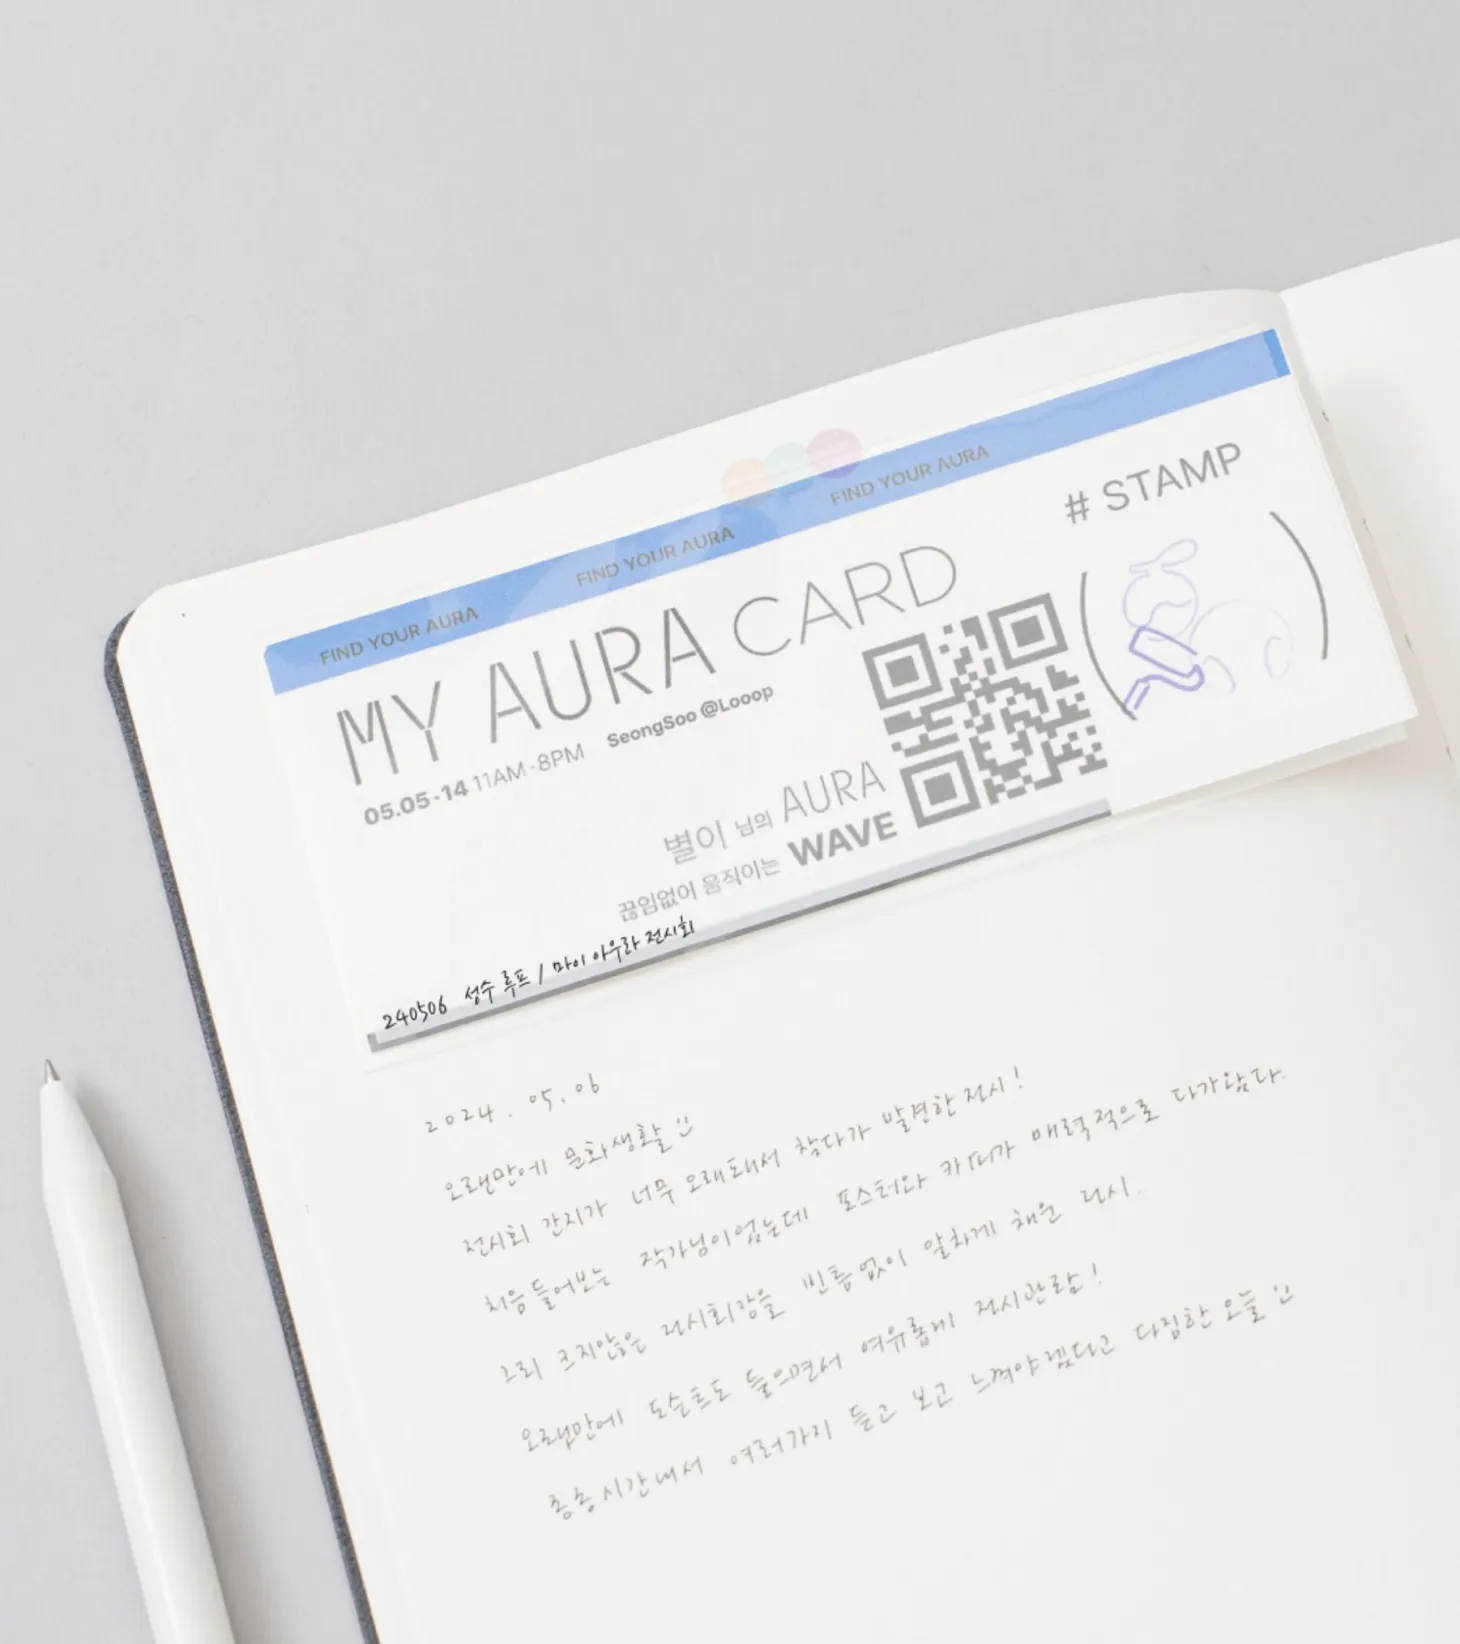 FIND YOUR AURA FIND YOUR AURA FIND YOUR AURA
# STAMP
MY AURA CARD
05.05-14 11AM-8PM SeongSoo @Looop
별이 님의 AURA
끊임없이 움직이는 WAVE
240506 성수 루프 / 마이 아우라 전시회
2024. 05. 06
오랜만에 문화생활
전시회 간지가 너무 오래돼서 찾다가 발견한 전시!
처음 들어보는 작가님이었는데 포스터와 카피가 매력적으로 다가왔다.
그리 크지않은 전시회장을 빈틈없이 알차게 채운 전시.
오랜만에 도슨트도 들으면서 여유롭게 전시관람!
종종 시간내서 여러가지 듣고 보고 느껴야겠다고 다짐한 오늘